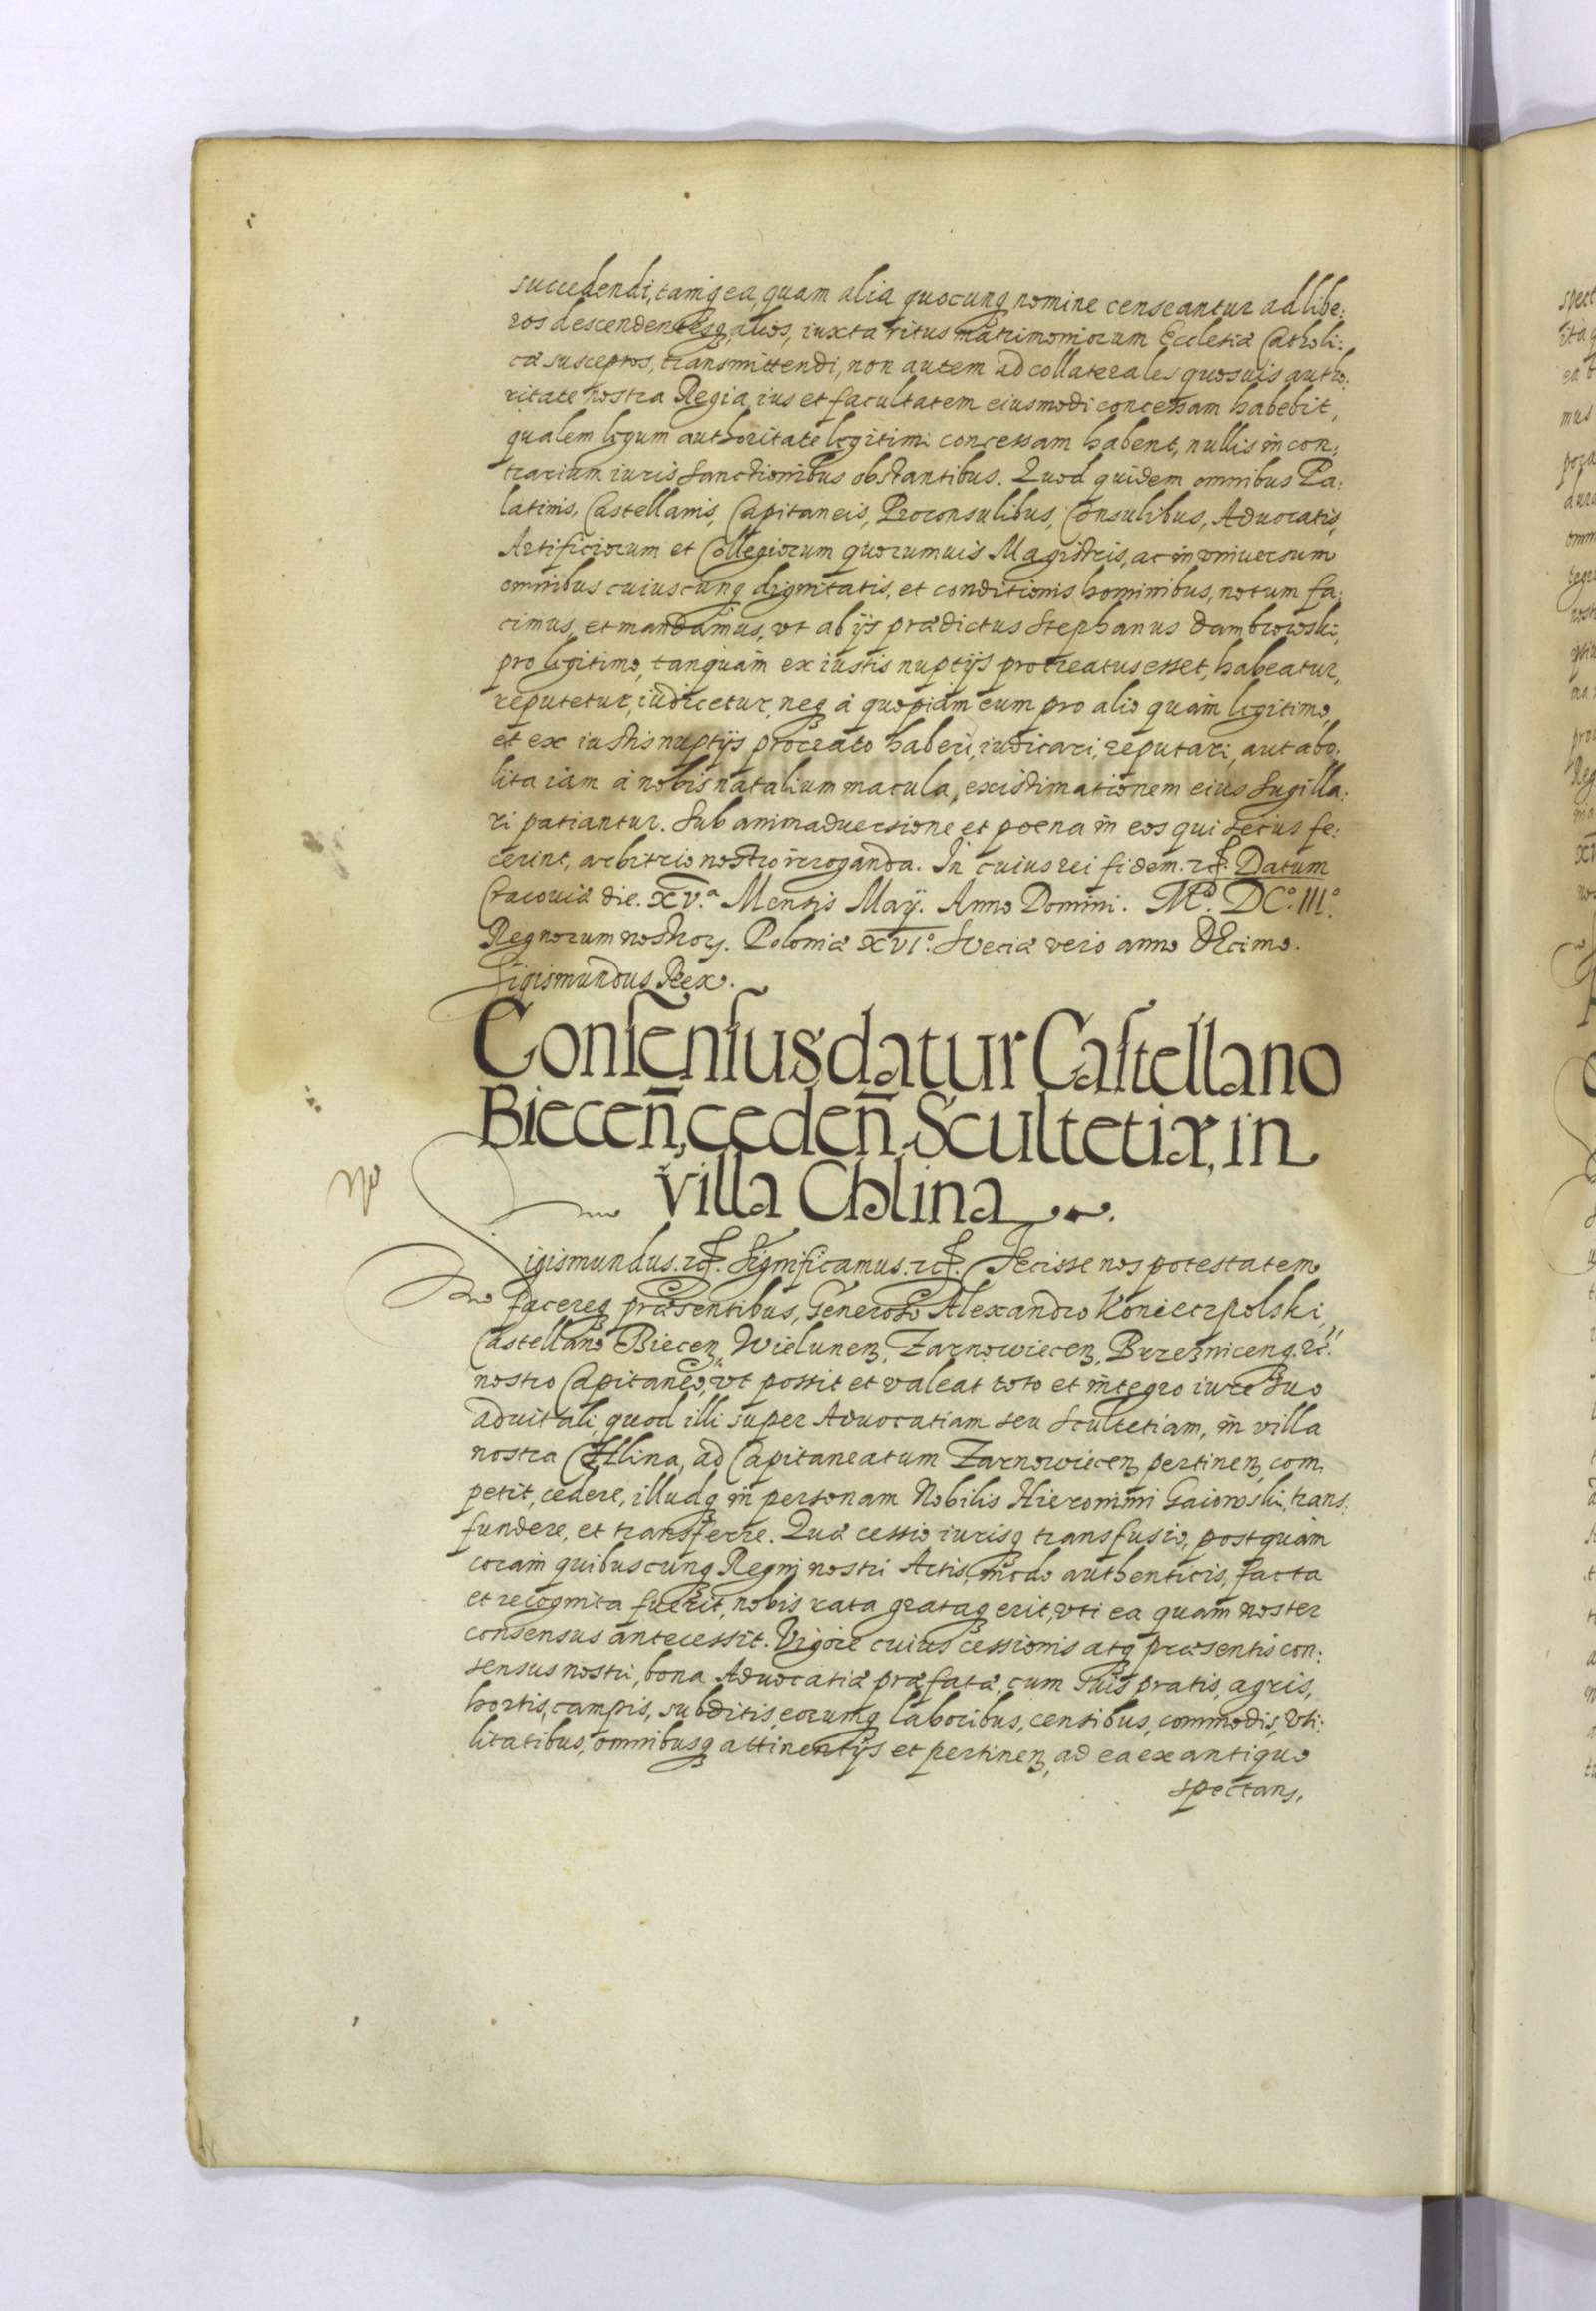 succedendi, tamq ea, quam alia quocunq nomine censeantur ad libe:
ros descendentesq, alios, iuxta ritus matrimoniorum Ecclesiæ Catholi:
cæ susceptos, transmittendi, non autem ad collaterales quosuis autho:
ritate nostra Regia, ius et facultatem eiusmodi concessam habebit,
qualem legum authoritate legitimi concessam habent, nullis in con:
trarium iuris sanctionibus obstantibus. Quod quidem omnibus Pa:
latinis, Castellanis, Capitaneis, Proconsulibus, Consulibus, Aduocatis,
Artificiorum et Collegiorum quorumuis Magistris, ac in vniuersum
omnibus cuiuscunq dignitatis, et conditionis hominibus, notum fa:
cimus, et mandamus, vt ab ijs prædictus Stephanus Dambrowski,
pro legitimo, tanquam ex iustis nuptijs procreatus esset, habeatur,
reputetur, iudicetur, neq à quopiam eum pro alio quàm legitimo,
et ex iustis nuptijs procreato haberi, iudicari, reputari, aut abo:
lita iam à nobis natalium macula, existimationem eius sugilla:
ri patiantur. Sub animaduersione et poena in eos qui secus fe:
cerint, arbitrio nostro irroganda. In cuius rei fidem. etc: Datum
Cracouiæ die. XV.a Mensis Maij. Anno Domini. Mo. DCo. IIIo.
Regnorum nostror. Poloniæ XVIo. Sueciæ vero anno Decimo.
Sigismundus Rex.
Consensus datur Castellano
Biecen̄, ceden̄. Scultetiæ, in
villa Chlina
Sigismundus. etc. Significamus. etc. Fecisse nos potestatem
facereq præsentibus, Generoso Alexandro Koniecpolski,
Castellano Biecen, Wielunen, Zarnowiecen, Brzeznicenq. etc.
nostro Capitaneo, vt possit et valeat toto et integro iure suo
aduitali, quod illi super Aduocatiam seu Scultetiam, in villa
nostra Chlina, ad Capitaneatum Zarnowiecen pertinen, com
petit, cedere, illudq in personam Nobilis Hieronimi Gaiowski, trans:
fundere, et transferre. Quæ cessio iurisq transfusio, postquàm
coram quibuscunq Regni nostri Actis, modo authenticis, facta
et recognita fuerit, nobis rata grataq erit, vti ea quam noster
consensus antecessit. Vigore cuius cessionis atq præsentis con:
sensus nostri, bona Aduocatiæ præfatæ, cum suis pratis, agris,
hortis, campis, subditis, eorumq laboribus, censibus, commodis, vti:
litatibus, omnibusq attinentijs et pertinen, ad ea ex antiquo
spectans,